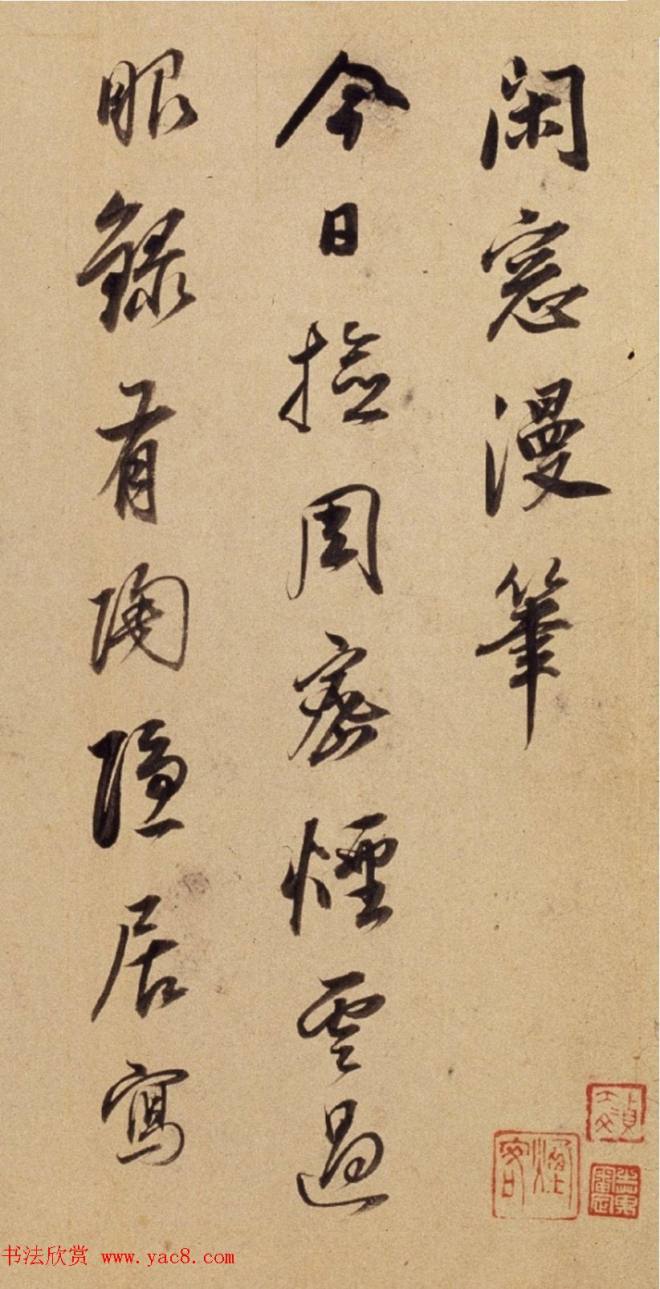 閑窓漫筆
今日撿周密煙雲過
眼錄有陶隱居寫
书法欣赏 www.yac8.com